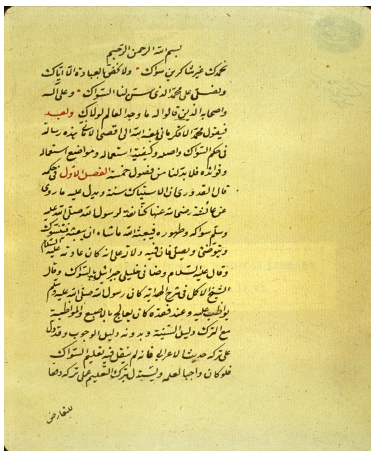 بسم الله الرحمن الرحيم
نحمدك غير شاكرين سواك ولا نخص بالعبادة الا اياك
ونصلى على محمد الذى سن لنا السواك وعلى اله
واصحابه الذين قالوا له ما وجد العالم لولاك وبعد
فيقول محمد بلغه الله الى اقصى هذه رسالة
فى حكم السواك واصله وكيفية استعماله ومواضع استعماله
وفوائده فلابد لنا من فصول خمسة الفصل الاول فى حكمه
قال القدورى ان الاستياك سنة ويدل عليه ما روى
عن عائشة رضى الله عنها كنا نعد لرسول الله صلى الله عليه
وسلم سواكه وطهوره فيبعثه الله ما شاء ان يبعثه فيتسوك
ويتوضى ويصلى
وقال عليه السلام وصانى خليلى جبرائيل بالسواك وقال
الشيخ الاكمل فى شرح الهداية كان رسول الله صلى الله عليه وسلم
يواظب عليه وعند فقده كان يعالج بالاصبع والمواظبة
مع الترك دليل السنية وبدونه دليل الوجوب وقد دل
على تركه حديث الاعرابى فانه لم ينقل فيه تعليم السواك
فلو كان واجبا لعلمه ويستدل بترك التعليم على تركه دفعا
للتعارض